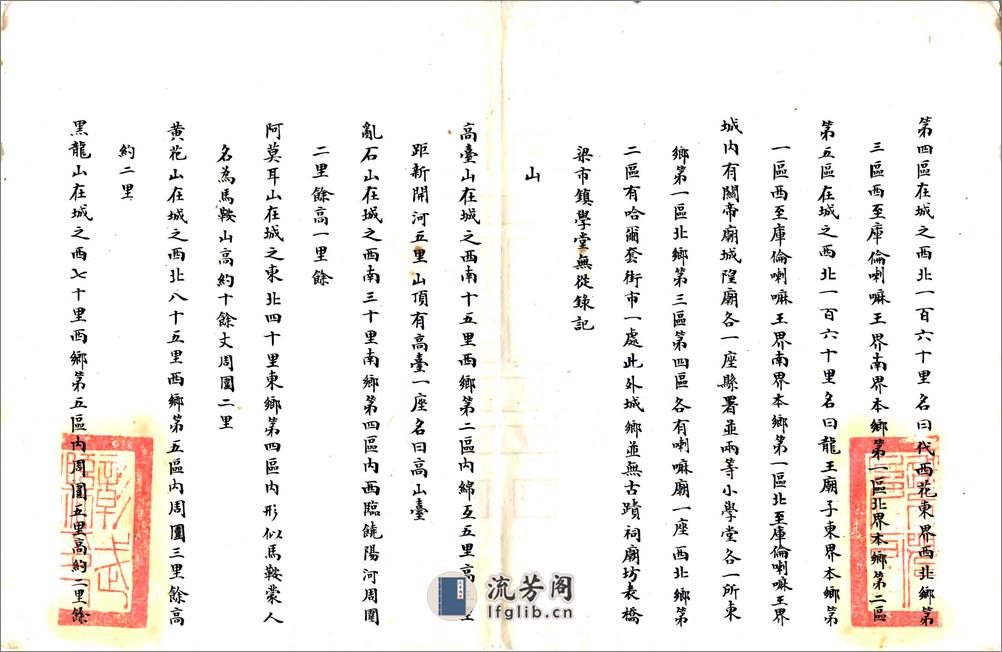 第四區在城之西北一百六十里名曰代西花東界西北鄉第
三區西至庫倫喇嘛王界南界本鄉第一區北界本鄉第二區
第五區在城之西北一百六十里名曰龍王廟子東界本鄉第
一區西至庫倫喇嘛王界南界本鄉第一區北至庫倫喇嘛王界
城內有關帝廟城隍廟各一座縣署並兩等小學堂各一所東
鄉第一區北鄉第三區第四區各有喇嘛廟一座西北鄉第
二區有哈爾套街市一處此外城鄉並無古蹟祠廟坊表橋
梁市鎮學堂無從錄記
山
高臺山在城之西南十五里西鄉第二區內綿亙五里高
距新開河五里山頂有高臺一座名曰高山臺
亂石山在城之西南三十里南鄉第四區內西臨饒陽河周圍
二里餘高一里餘
阿莫耳山在城之東北四十里東鄉第四區內形似馬鞍蒙人
名為馬鞍山高約十餘丈周圍二里
黃花山在城之西北八十五里西鄉第五區內周圍三里餘高
約二里
黑龍山在城之西七十里西鄉第五區內周圍五里高約二里餘
彰武
流芳阁
lfglib.cn